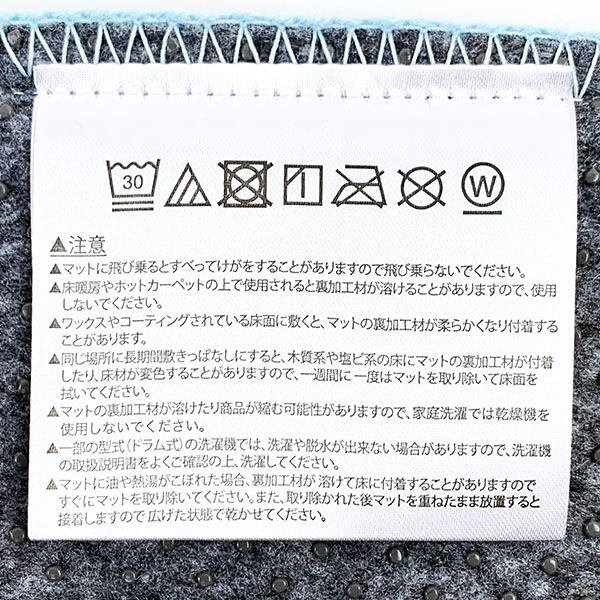 30
W
▲注意
▲マットに飛び乗るとすべってけがをすることがありますので飛び乗らないでください。
▲床暖房やホットカーペットの上で使用されると裏加工材が溶けることがありますので、使用
しないでください。
▲ワックスやコーティングされている床面に敷くと、マットの裏加工材が柔らかくなり付着する
ことがあります。
▲同じ場所に長期間敷きっぱなしにすると、木質系や塩ビ系の床にマットの裏加工材が付着
したり、床材が変色することがありますので、一週間に一度はマットを取り除いて床面を
拭いてください。
▲マットの裏加工材が溶けたり商品が縮む可能性がありますので、家庭洗濯では乾燥機を
使用しないでください。
▲一部の型式(ドラム式)の洗濯機では、洗濯や脱水が出来ない場合がありますので、洗濯機
の取扱説明書をよくご確認の上、洗濯してください。
▲マットに油や熱湯がこぼれた場合、裏加工材が溶けて床に付着することがありますので
すぐにマットを取り除いてください。また、取り除かれた後マットを重ねたまま放置すると
接着しますので広げた状態で乾かせてください。